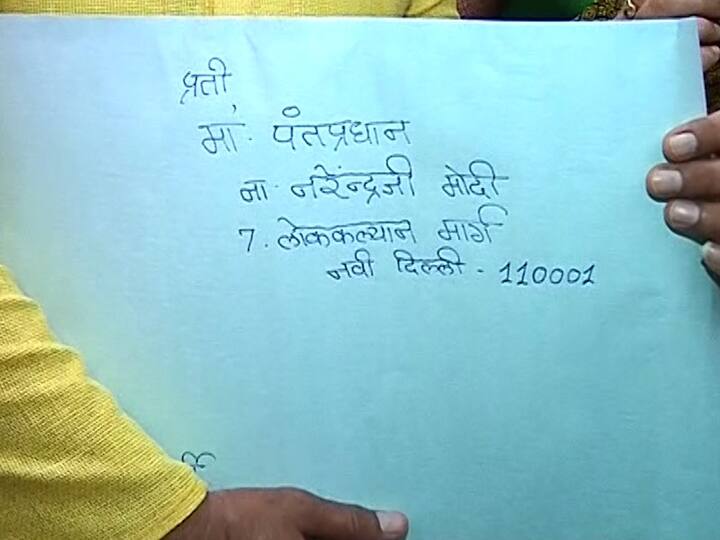 प्रती,
मा. पंतप्रधान
ना. नरेंन्द्रजी मोदी
7. लोककल्यान मार्ग
नवी दिल्ली - 110001